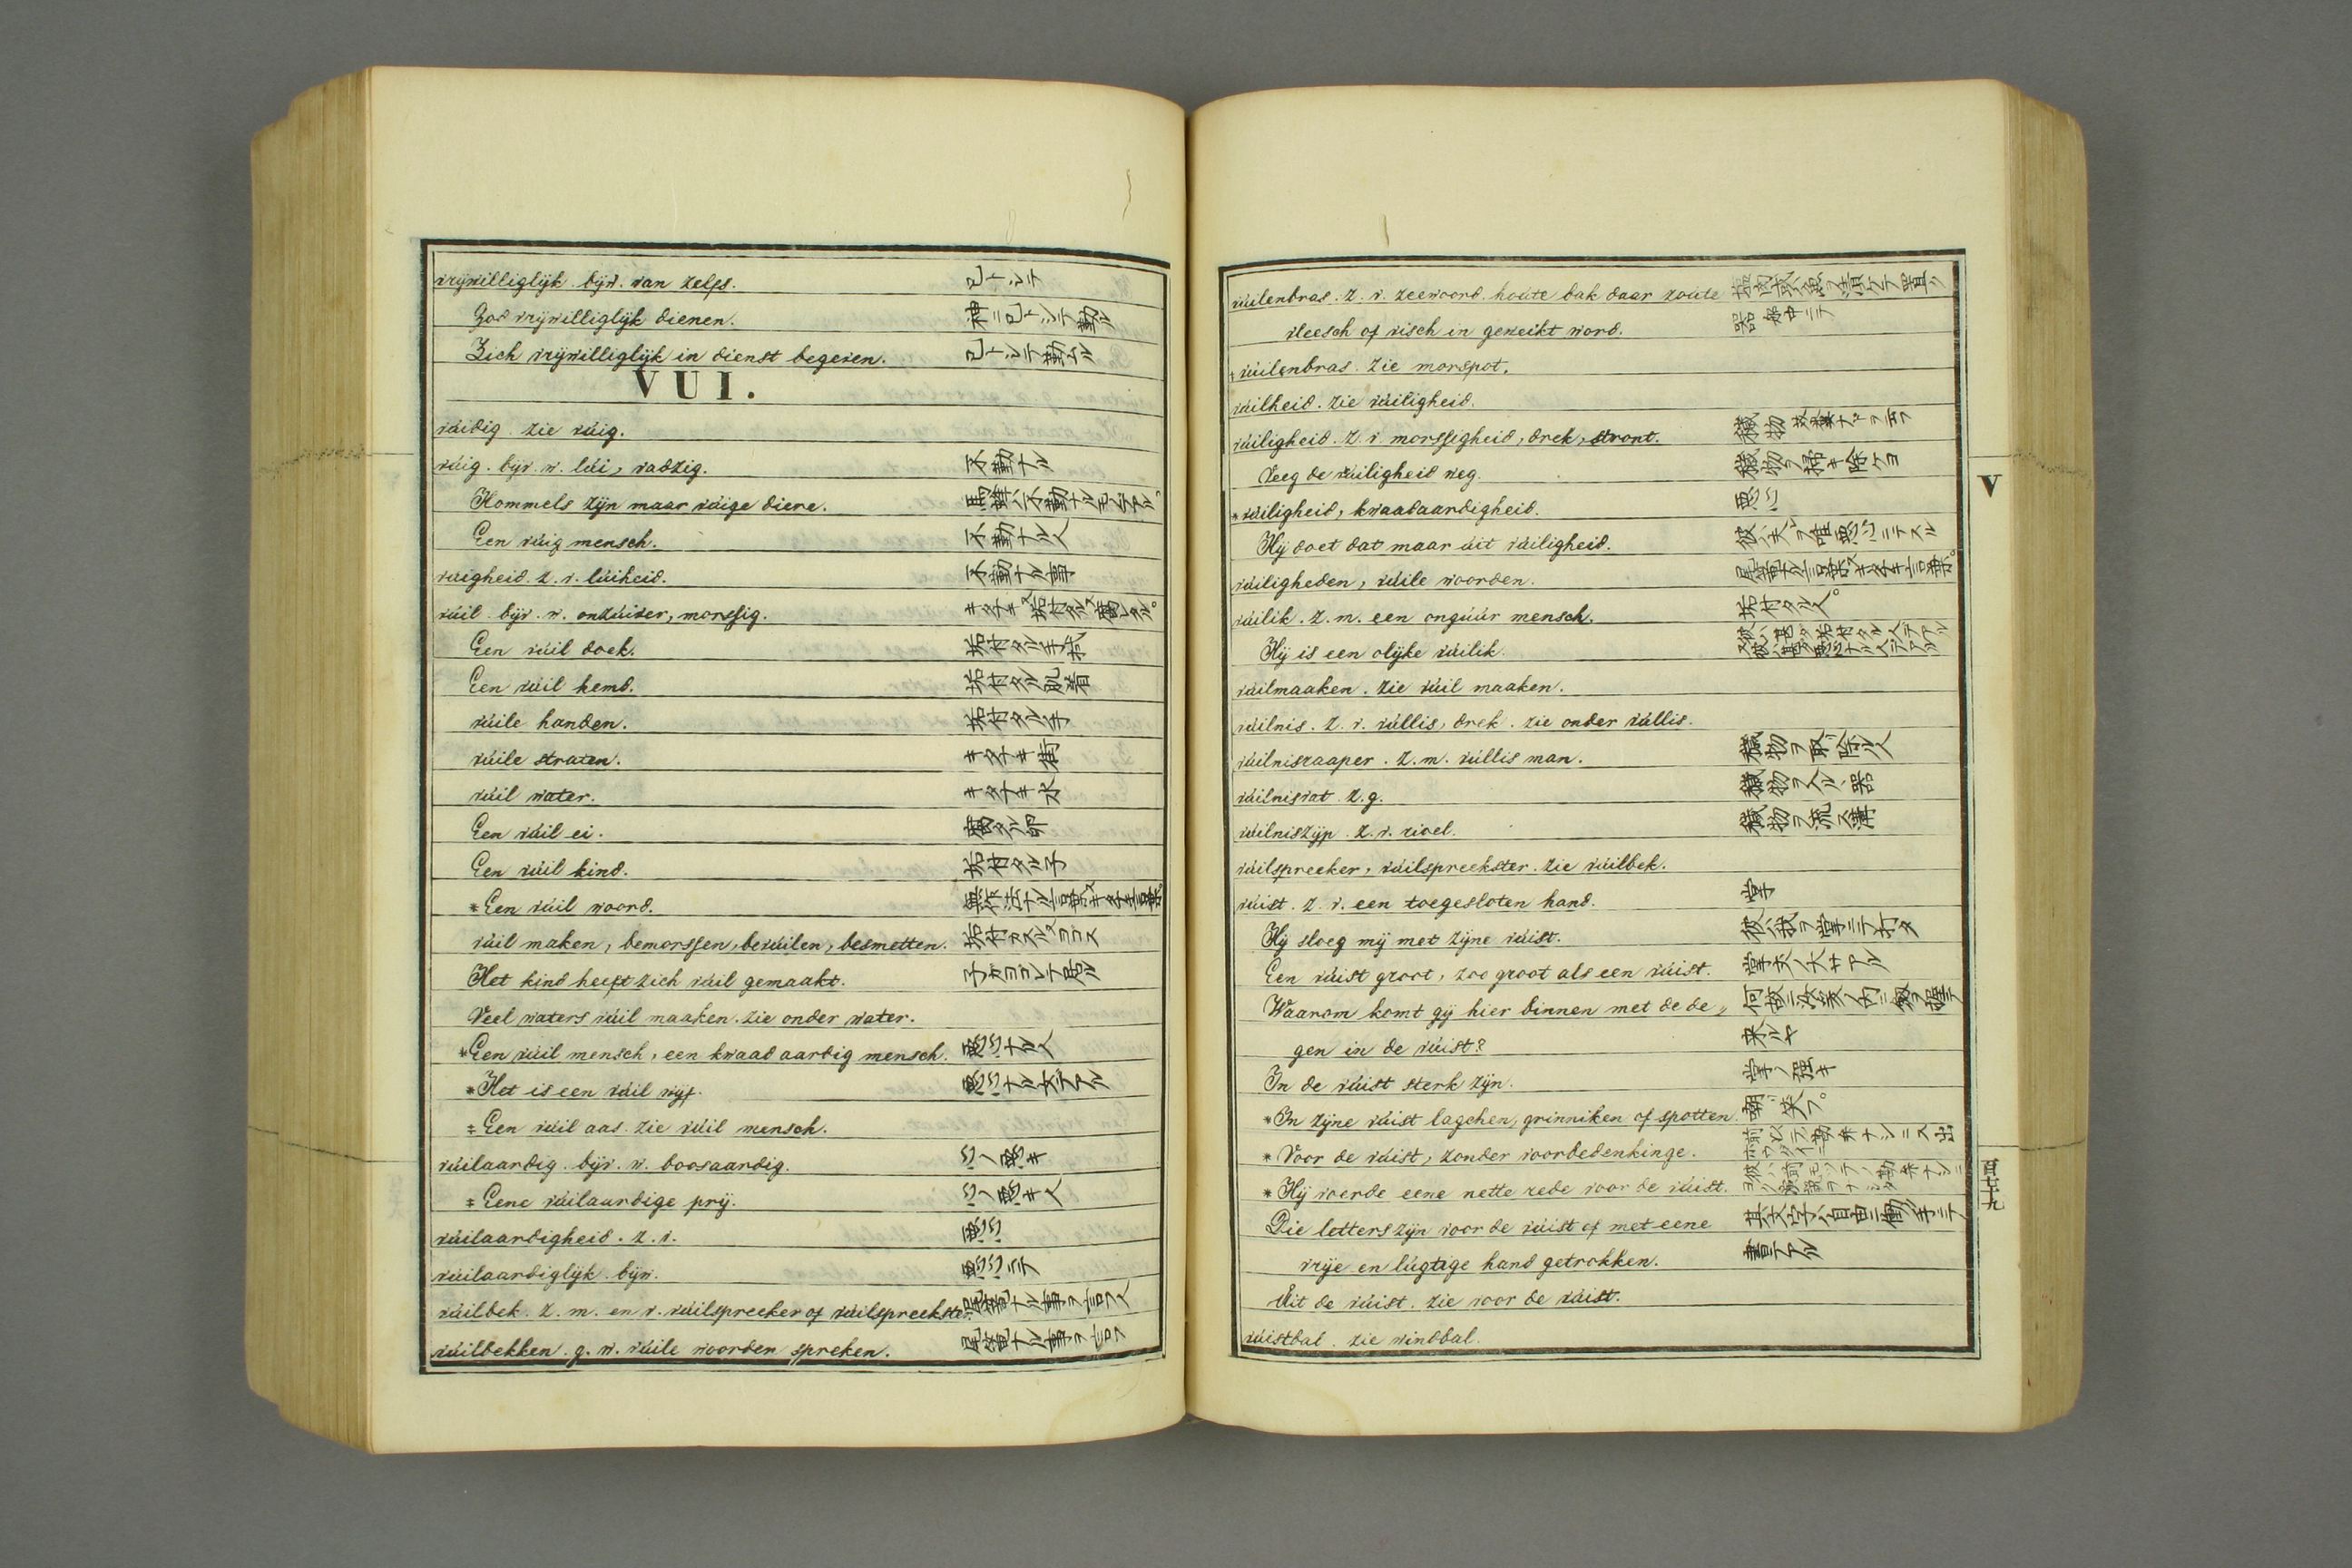 vrijwilliglijk. bijw. van zelfs. 己トシテ
God vrijwilliglijk dienen. 神ニ己トシテ勤ル
Zich vrijwilliglijk in dienst begeven. 己トシテ勤ムル
VUI.
vúidig. zie vúig.
vúig. bijv. w. lúi, vadzig. 不勤ナル
Hommels zijn maar vúige diere.
Een vúig mensch. 不勤ナル人
vúigheid. z. v. lúiheid. 不勤ナル事
vúil. bijv. w. onzúiver, morssig.
Een vúil doek.
Een vúil hemd. 垢付タル肌着
vúile handen. 垢付タル手
vúile straten. キタナキ街
vúil water. キタナキ水
Een vúil ei.
Een vúil kind. 垢付タル子
*Een vúil woord.
vúil maken, bemorssen, bevúilen, besmetten.
Het kind heeft zich vúil gemaakt. 子カヨゴレテ居ル
Veel waters vúil maaken. zie onder water.
*Een vúil mensch, een kwaad aardig mensch. 悪心ナル人
*Het is een vúil wijf. 悪心ナル女デアル
‡Een vúil aas. zie vúil mensch.
vúilaardig. bijv. w. boosaardig. 心ノ悪キ
‡Eene vúilaardige prij. 心ノ悪キ人
vúilaardigheid. z. v. 悪心
vúilaardiglijk. bijw. 悪心ニテ
vúilbek. z. m. en v. vúilspreeker of vúilspreekster. 尾籠ナル事ヲ言フ人
vúilbekken. g. w. vúile woorden spreken. 尾籠ナル事ヲ言フ
vúilenbras. z. v. zeewoord. hoúte bak daar zoúte
vleesch of visch in geweikt word.
‡vúilenbras. zie morspot.
vúilheid. zie vúiligheid.
vúiligheid. z. v. morssigheid, drek, stront.
Veeg de vúiligheid weg. 穢物ヲ掃キ除ケヨ
*vúiligheid, kwaadaardigheid. 悪心
Hij doet dat maar úit vúiligheid. 彼ハ夫ヲ唯悪心ニテスル
vúiligheden, vúile woorden.
vúilik. z. m. een ongúúr mensch. 垢付タル人。
Hij is een olijke vúilik.
vúilmaaken. zie vúil maaken.
vúilnis. z. v. vúllis, drek. zie onder vúllis.
vúilnisraaper. z. m. vúllis man. 穢物ヲ取除ル人
vúilnisvat. z. g. 穢物ヲ入ル器
vúilniszijp. z. v. riool. 穢物ヲ流ス溝
vúilspreeker, vúilspreekster. zie vúilbek.
vúist. z. v. een toegesloten hand. 拳
Hij sloeg mij met zijne vúist. 彼ハ我ヲ拳ニテ打タ
Een vúist groot, zoo groot als een vúist.
Waarom komt gij hier binnen met de de〃
gen in de vúist? 来ルヤ
In de vúist sterk zijn. 拳ノ强キ
*In zijne vúist lagchen, grinniken of spotten. 嘲笑フ。
*Voor de vúist, zonder voorbedenkinge.
*Hij voerde eene nette rede voor de vúist.
Die letters zijn voor de vúist of met eene 其文字ハ自由ニ働ク手ニテ
vrije en lúgtige hand getrokken. 書テアル
Uit de vúist. zie voor de vúist.
vúistbal. zie windbal.
V